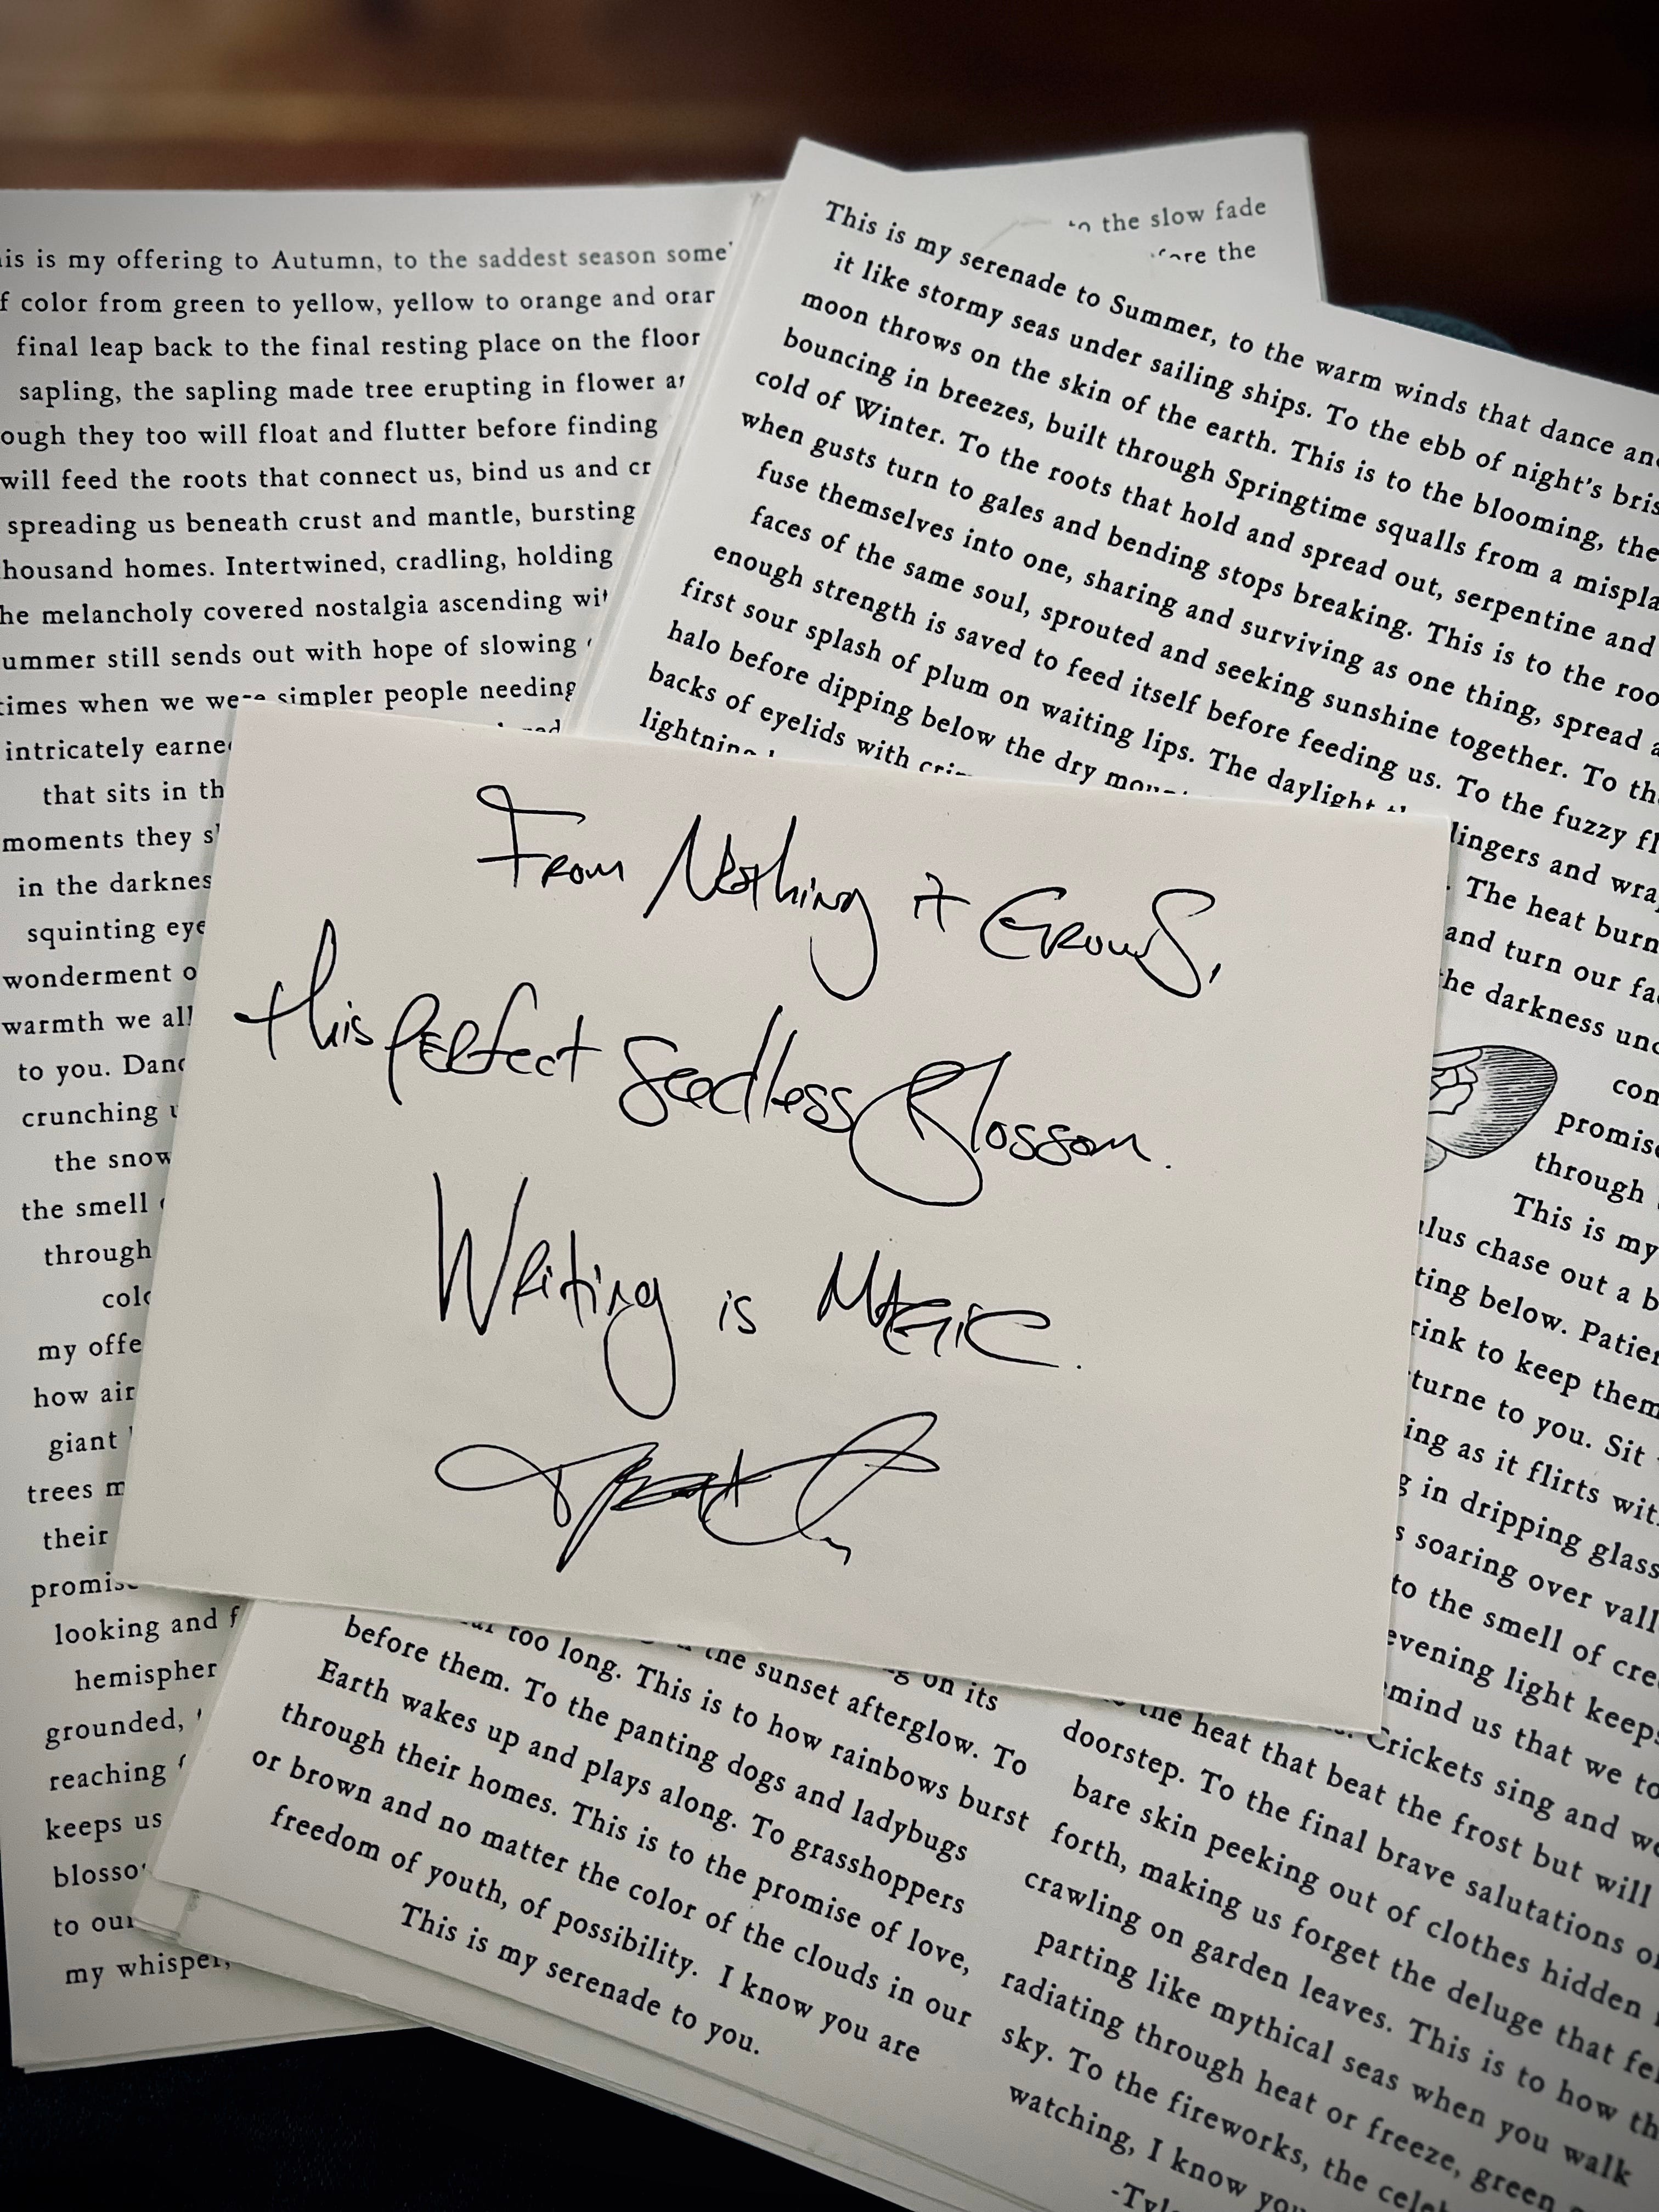 is is my offering to Autumn, to the saddest season some
f color from green to yellow, yellow to orange and orar
final leap back to the final resting place on the floor
sapling, the sapling made tree erupting in flower ar
ough they too will float and flutter before finding
will feed the roots that connect us, bind us and cr
spreading us beneath crust and mantle, bursting
housand homes. Intertwined, cradling, holding
he melancholy covered nostalgia ascending wit
ummer still sends out with hope of slowing
times when we were simpler people needing
intricately earne
that sits in th
moments they s
in the darknes
squinting eye
wonderment o
warmth we all
to you. Danc
crunching u
the snow
the smell
through
colo
my offe
how air
giant
trees m
their
promis
looking and f
hemispher
grounded,
reaching f
keeps us
blosso
to our
my whisper,
to the slow fade
ore the
This is my serenade to Summer, to the warm winds that dance and
it like stormy seas under sailing ships. To the ebb of night's bris
moon throws on the skin of the earth. This is to the blooming, the
bouncing in breezes, built through Springtime squalls from a mispla
cold of Winter. To the roots that hold and spread out, serpentine and
when gusts turn to gales and bending stops breaking. This is to the roo
fuse themselves into one, sharing and surviving as one thing, spread a
faces of the same soul, sprouted and seeking sunshine together. To th
enough strength is saved to feed itself before feeding us. To the fuzzy fl
first sour splash of plum on waiting lips. The daylight th lingers and wra
halo before dipping below the dry moun . The heat burn
backs of eyelids with cri and turn our fa
lightning the darkness und
com
promise
through
This is my
ulus chase out a b
ting below. Patien
rink to keep them
turne to you. Sit
ing as it flirts wit
g in dripping glass
s soaring over vall
to the smell of cre
evening light keeps
mind us that we to
Crickets sing and we
From Nothing it Grows,
this perfect seedless Blossom.
Writing is Magic.
g on its
the sunset afterglow. To
too long. This is to how rainbows burst
before them. To the panting dogs and ladybugs
Earth wakes up and plays along. To grasshoppers
through their homes. This is to the promise of love,
or brown and no matter the color of the clouds in our
freedom of youth, of possibility. I know you are
This is my serenade to you.
the heat that beat the frost but will
doorstep. To the final brave salutations of
bare skin peeking out of clothes hidden
forth, making us forget the deluge that fel
crawling on garden leaves. This is to how th
parting like mythical seas when you walk
radiating through heat or freeze, green
sky. To the fireworks, the celeb
watching, I know you
-Tyle